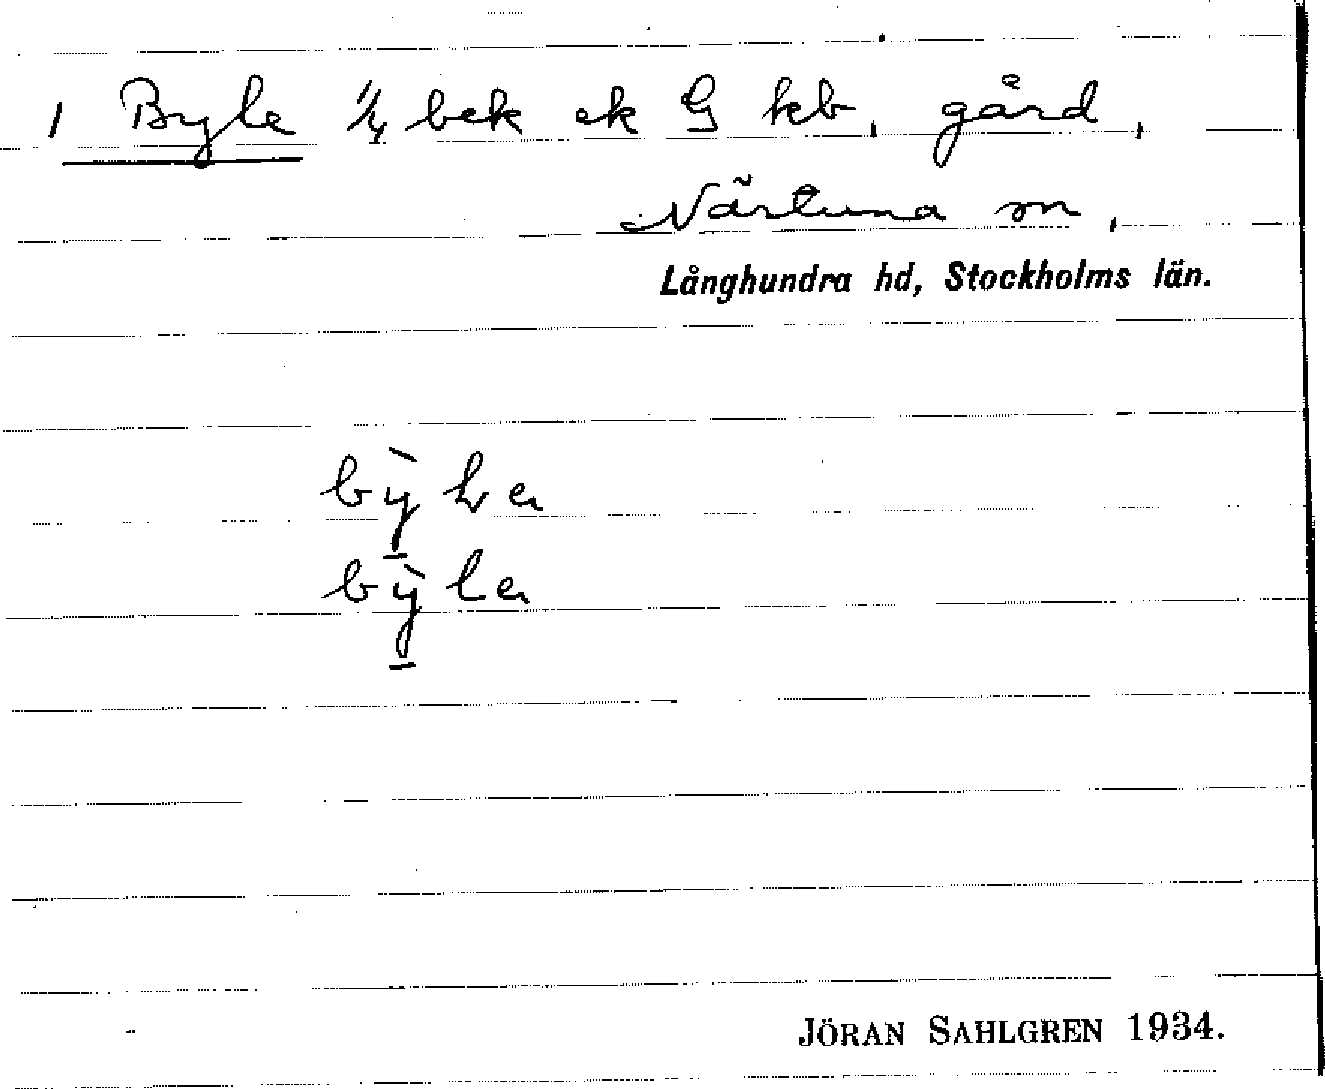 1 Byle 1/4 bek ek G kb, gård,
Närtuna sn,
Långhundra hd, Stockholms län.
bỳ
bỳla
JÖRAN SAHLGREN 1934.